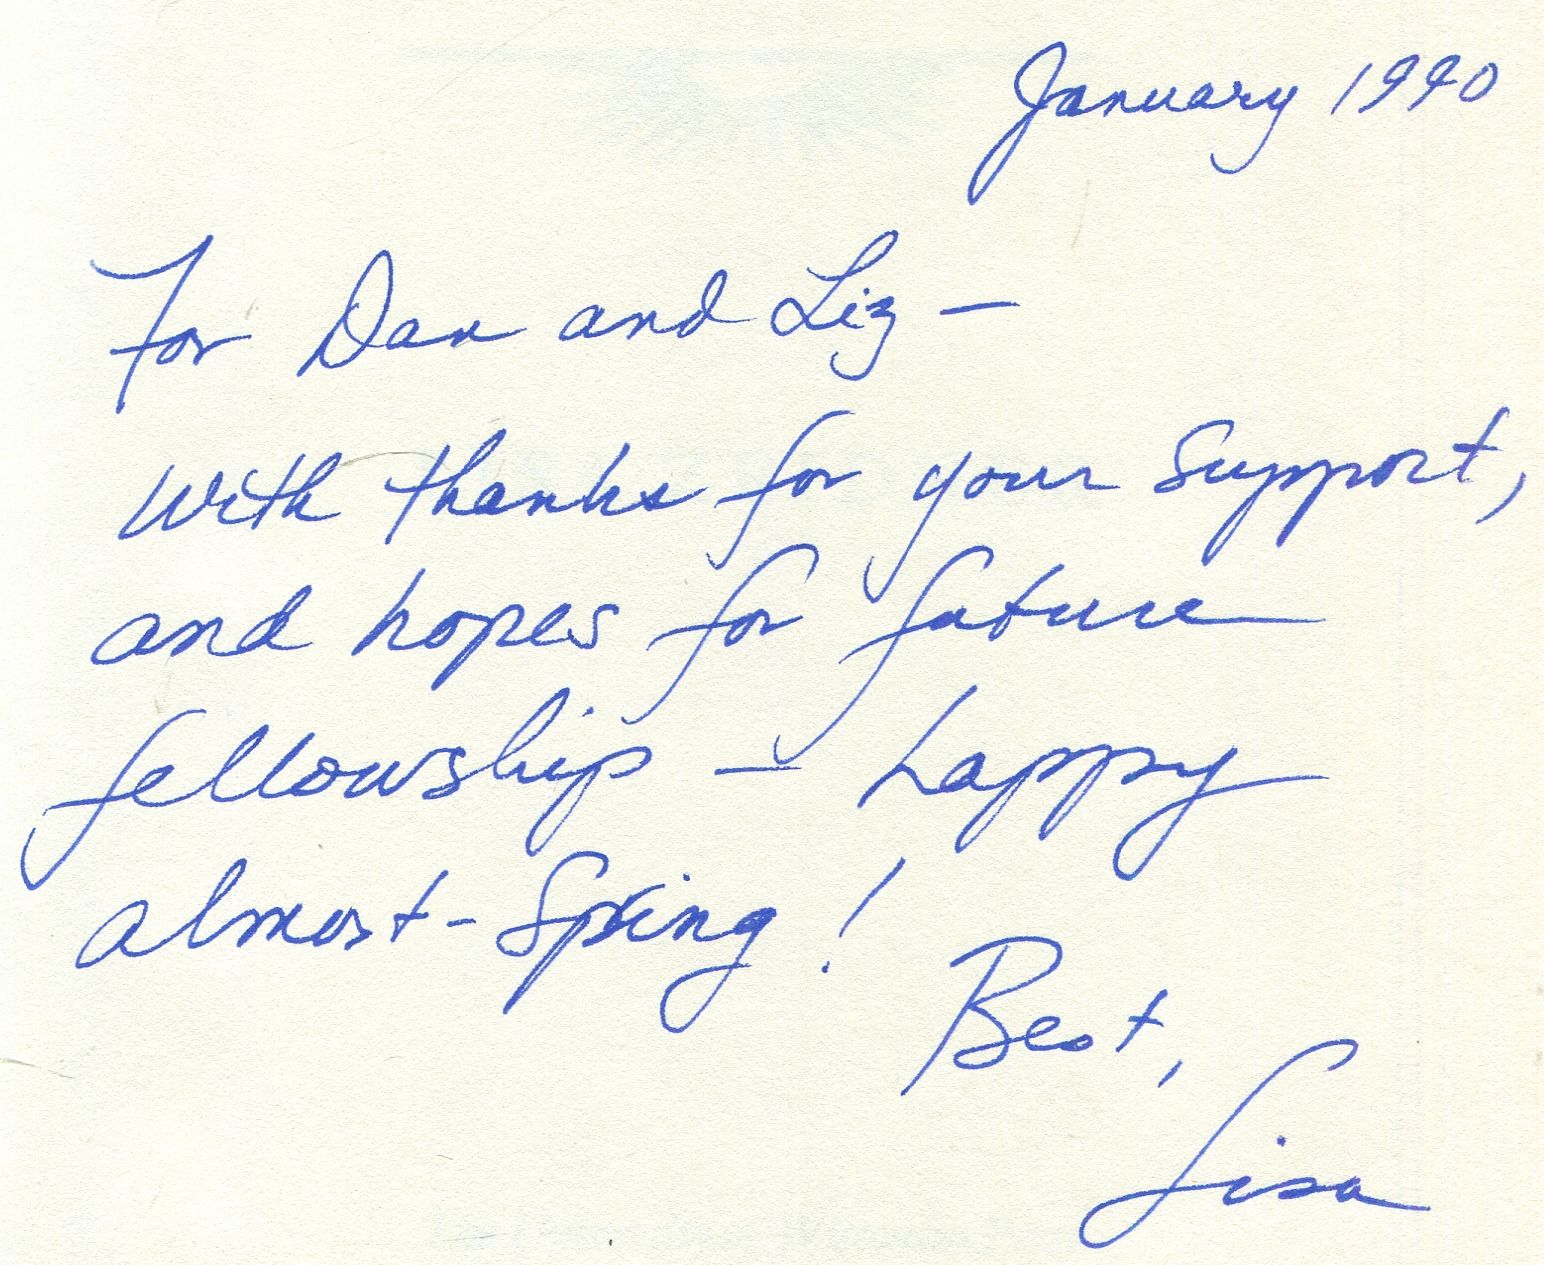 January 1990
For Dan and Liz –
With thanks for your support,
and hopes for future
fellowship – happy
almost-Spring!
Best,
Lisa